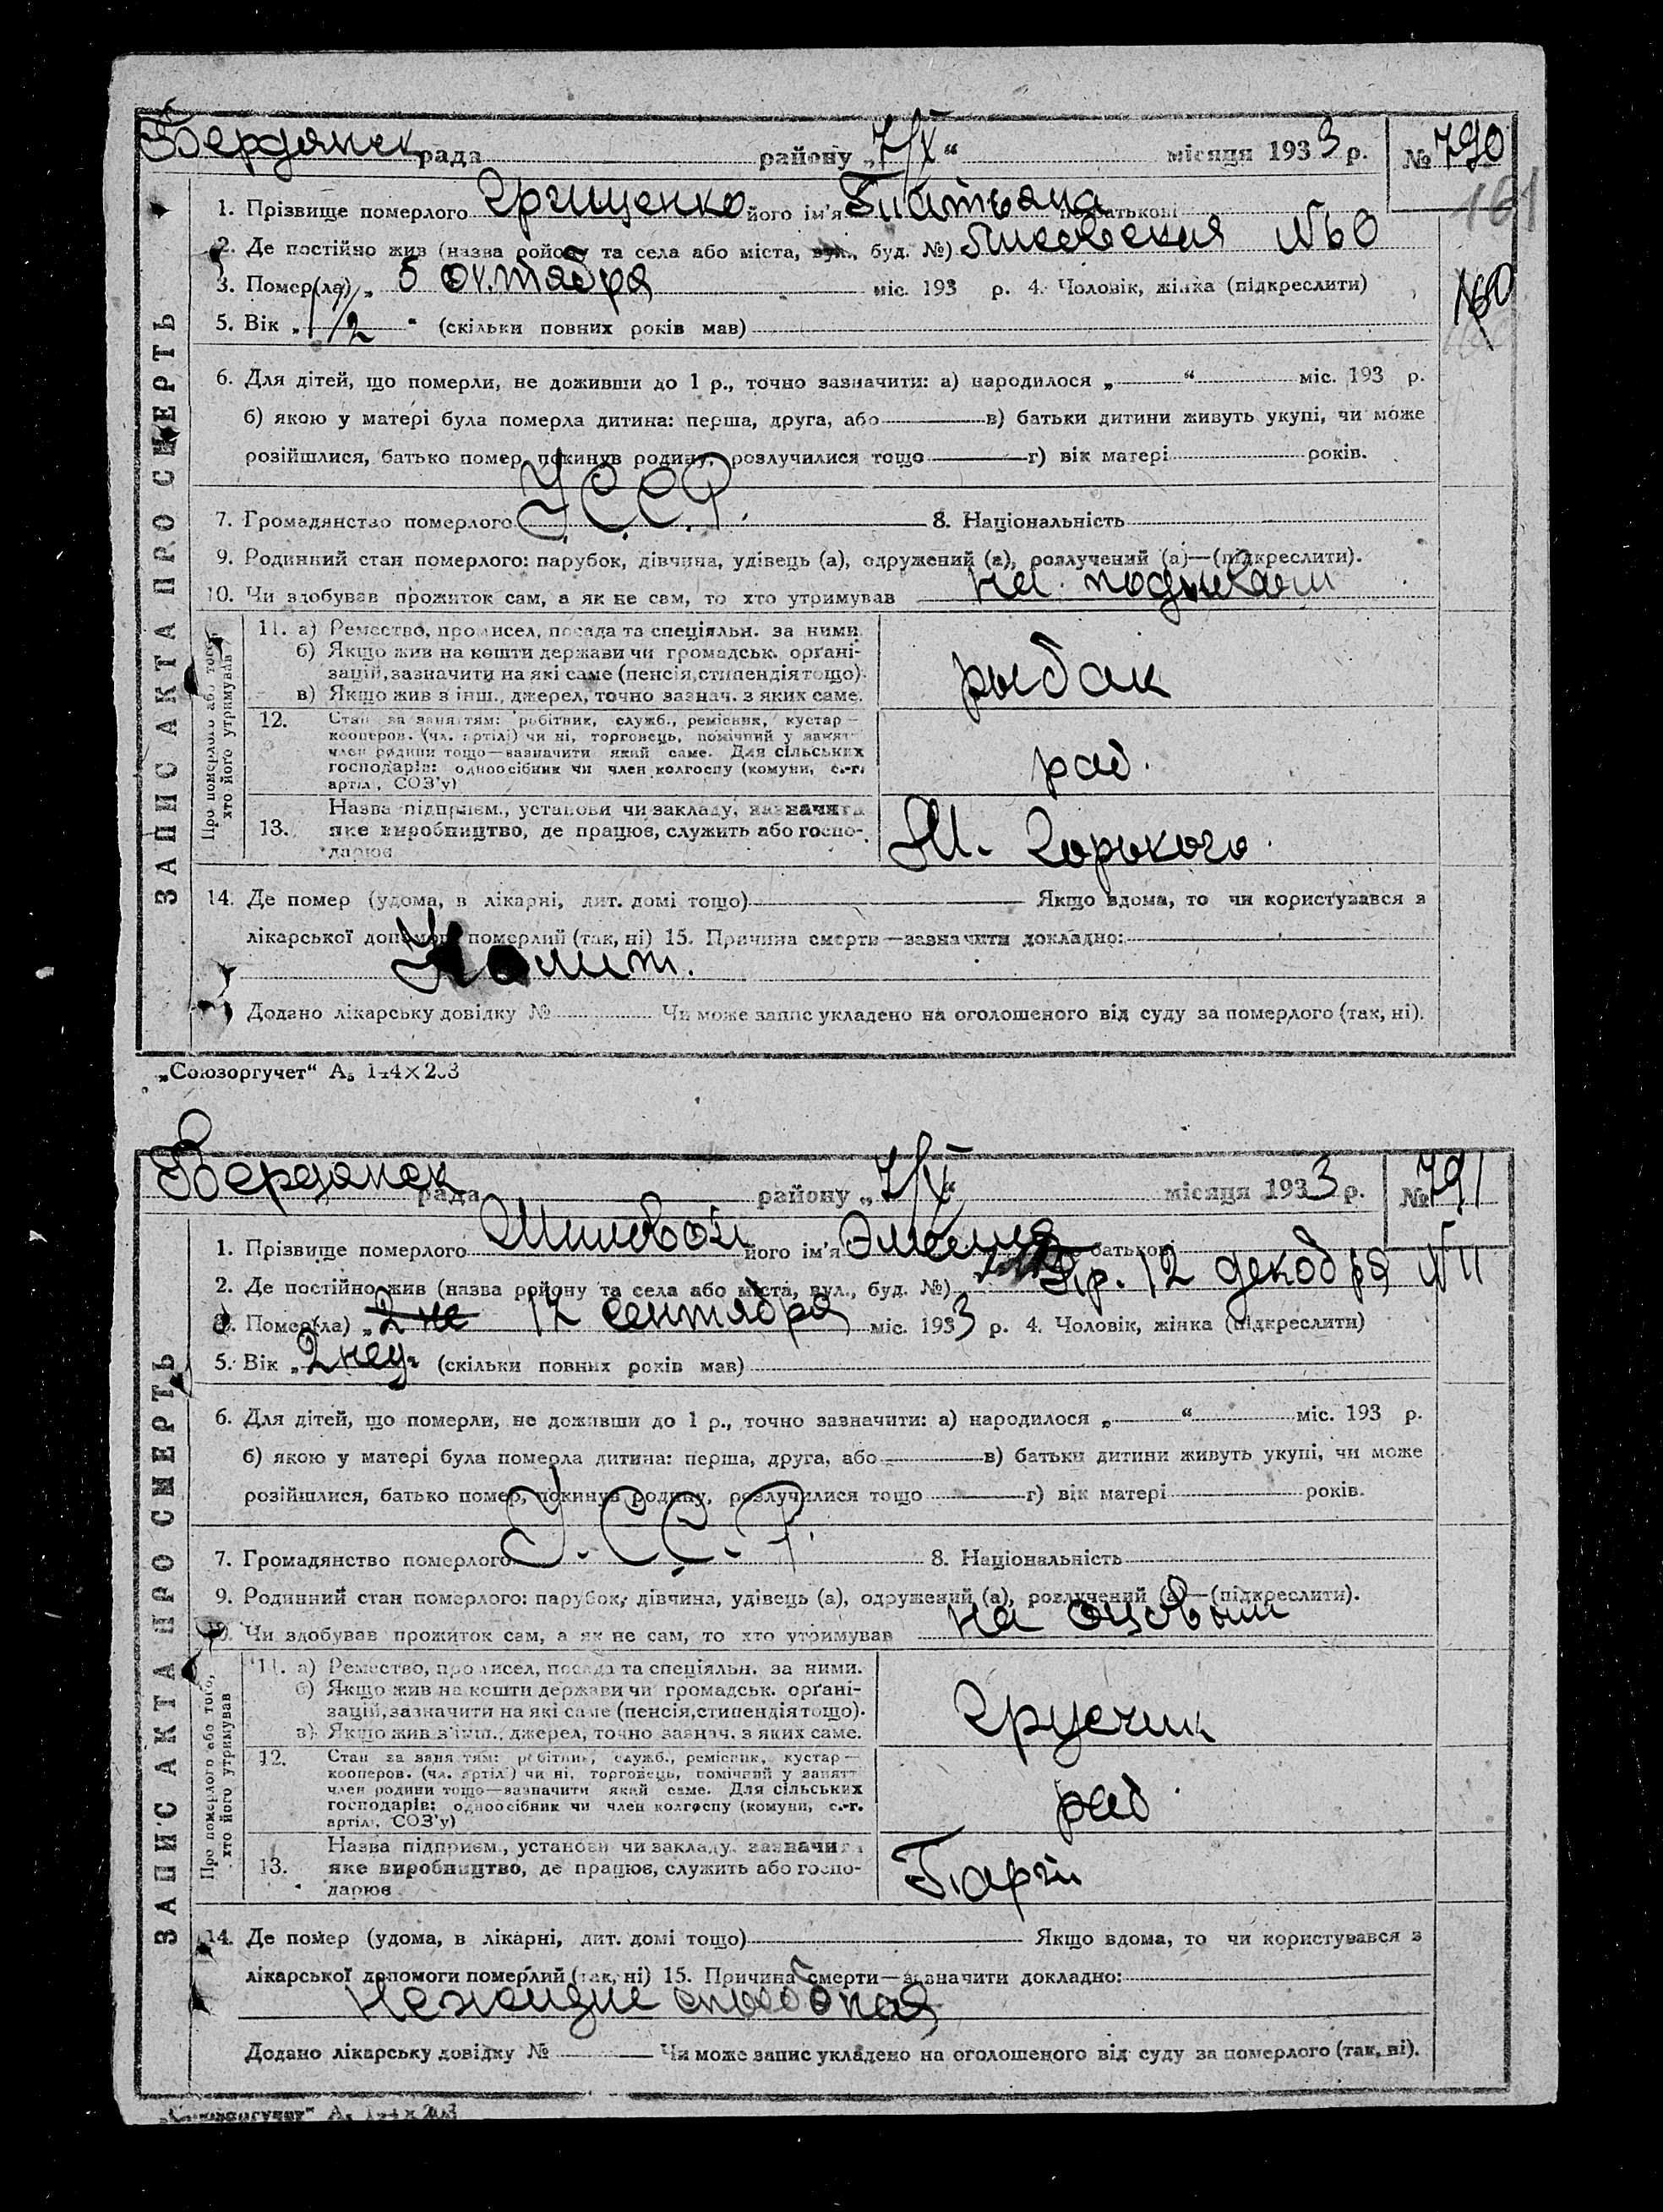 Бердянск рада району „7/X“ місяця 1933 р. № 790
161
1. Прізвище померлого Грищенко його ім'я Татьяна по батькові
2. Де постійно жив (назва ройону та села або міста, вул., буд. №) Лисковская № 60
3. Помер(ла) „ 5 октября міс. 193 р. 4. Чоловік, жінка (підкреслити)
5. Вік „ 1 1/2 “ (скільки повних років мав)
6. Для дітей, що померли, не доживши до 1 р., точно зазначити: а) народилося „ “ міс. 193 р.
б) якою у матері була померла дитина: перша, друга, або в) батьки дитини живуть укупі, чи може
розійшлися, батько помер, покинув родину, розлучилися тощо г) вік матері років.
7. Громадянство померлого У.С.С.Р. 8. Національність
9. Родинний стан померлого: парубок, дівчина, удівець (а), одружений (а), розлучений (а)—(підкреслити).
10. Чи здобував прожиток сам, а як не сам, то хто утримував на
ЗАПИС АКТА ПРО СМЕРТЬ
Про померлого або того, хто його утримував
11. а) Ремество, промисел, посада та спеціяльн. за ними.
б) Якщо жив на кошти держави чи громадськ. органі-
зацій, зазначити на які саме (пенсія, стипендія тощо).
в) Якщо жив з інш., джерел, точно зазнач. з яких саме.
рыбак
12. Стан за заняттям: робітник, служб., ремісник, кустар—
кооперов. (чл. артілі) чи ні, торговець, помічний у занятт
член родини тощо—зазначити який саме. Для сільських
господарів: одноосібник чи член колгоспу (комуни, с.-г.
артілі, СОЗ'у)
раб.
13. Назва підприєм., установи чи закладу, зазначити
яке виробництво, де працює, служить або госпо-
дарює
М. Горького.
14. Де помер (удома, в лікарні, дит. домі тощо) Якщо вдома, то чи користувався з
лікарської допомоги померлий (так, ні) 15. Причина смерти—зазначити докладно:
Колит.
Додано лікарську довідку № Чи може запис укладено на оголошеного від суду за померлого (так, ні).
„Союзоргучет“
Бердянск рада району „7/X“ місяця 1933 р. № 791
1. Прізвище померлого його ім'я по батькові
2. Де постійно жив (назва ройону та села або міста, вул., буд. №) Пр. 12 декабря № 11
3. Помер(ла) „ 12 сентября міс. 1933 р. 4. Чоловік, жінка (підкреслити)
5. Вік „ 2 нед. (скільки повних років мав)
6. Для дітей, що померли, не доживши до 1 р., точно зазначити: а) народилося „ “ міс. 193 р.
б) якою у матері була померла дитина: перша, друга, або в) батьки дитини живуть укупі, чи може
розійшлися, батько помер, покинув родину, розлучилися тощо г) вік матері років.
7. Громадянство померлого У.С.С.Р. 8. Національність
9. Родинний стан померлого: парубок, дівчина, удівець (а), одружений (а), розлучений (а)—(підкреслити).
10. Чи здобував прожиток сам, а як не сам, то хто утримував на
ЗАПИС АКТА ПРО СМЕРТЬ
Про померлого або того, хто його утримував
11. а) Ремество, промисел, посада та спеціяльн. за ними.
б) Якщо жив на кошти держави чи громадськ. органі-
зацій, зазначити на які саме (пенсія, стипендія тощо).
в) Якщо жив з інш., джерел, точно зазнач. з яких саме.
грузчик
12. Стан за заняттям: робітник, служб., ремісник, кустар—
кооперов. (чл. артілі) чи ні, торговець, помічний у занятт
член родини тощо—зазначити який саме. Для сільських
господарів: одноосібник чи член колгоспу (комуни, с.-г.
артілі, СОЗ'у)
раб.
13. Назва підприєм., установи чи закладу, зазначити
яке виробництво, де працює, служить або госпо-
дарює
14. Де помер (удома, в лікарні, дит. домі тощо) Якщо вдома, то чи користувався з
лікарської допомоги померлий (так, ні) 15. Причина смерти—зазначити докладно:
Додано лікарську довідку № Чи може запис укладено на оголошеного від суду за померлого (так, ні).
„Союзоргучет“